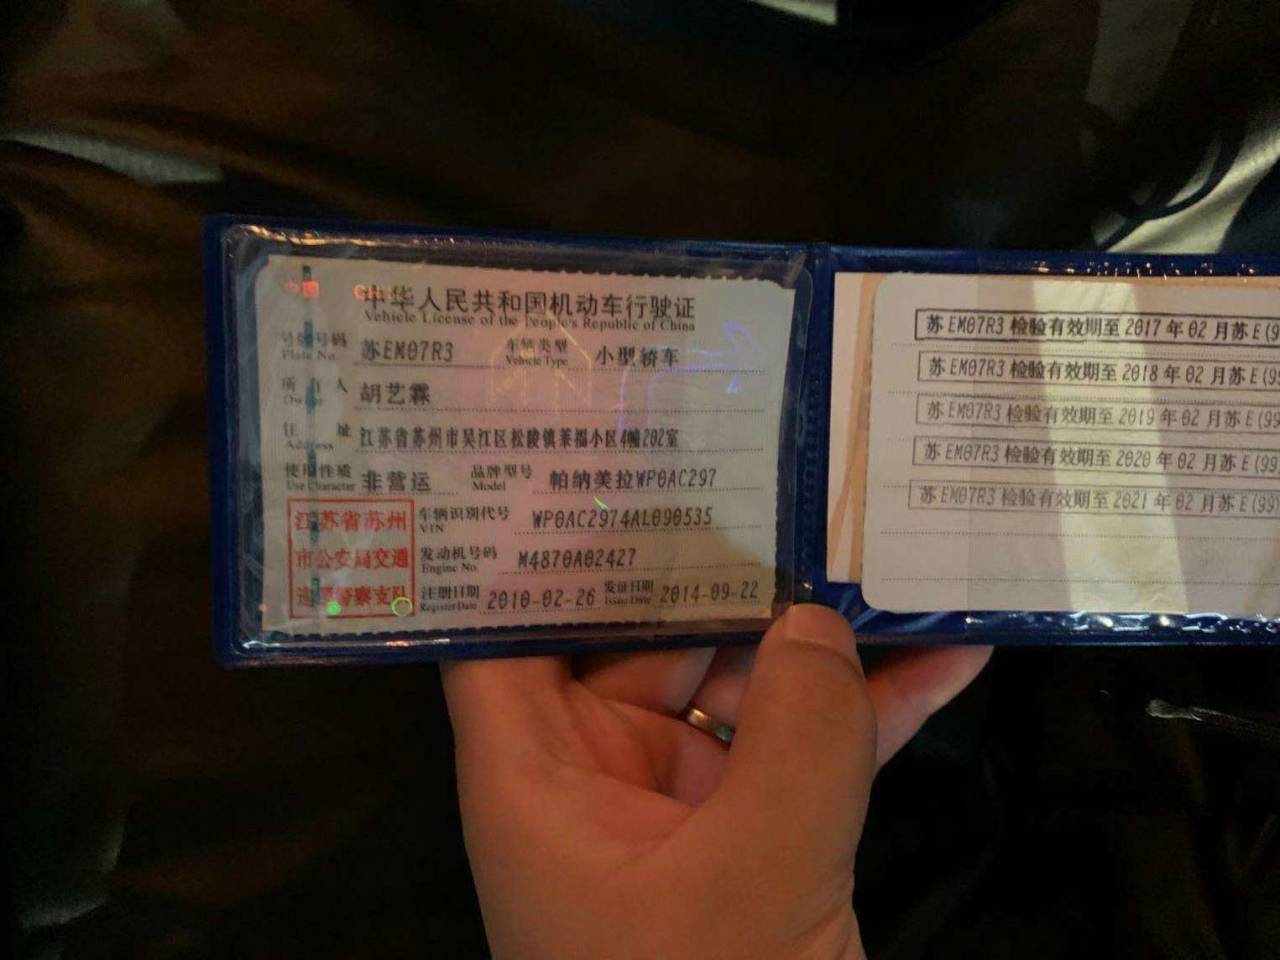 中国
中华人民共和国机动车行驶证
Vehicle License of the People's Republic of China
号牌号码 苏EM07R3 车辆类型 小型轿车
Plate No. Vehicle Type
所有人 胡艺霖
Owner
住址 江苏省苏州市吴江区松陵镇莱福小区4幢202室
Address
使用性质 非营运 品牌型号 帕纳美拉WP0AC297
Use Character Model
江苏省苏州
市公安局交通
巡逻警察支队
车辆识别代号 WP0AC2974AL090535
VIN
发动机号码 M4870A02427
Engine No.
注册日期 2010-02-26 发证日期 2014-09-22
Register Date Issue Date
苏EM07R3 检验有效期至 2017 年 02 月苏E(99
苏EM07R3 检验有效期至 2018 年 02 月苏E(99
苏EM07R3 检验有效期至 2019 年 02 月苏E(99
苏EM07R3 检验有效期至 2020 年 02 月苏E(99
苏EM07R3 检验有效期至 2021 年 02 月苏E(99